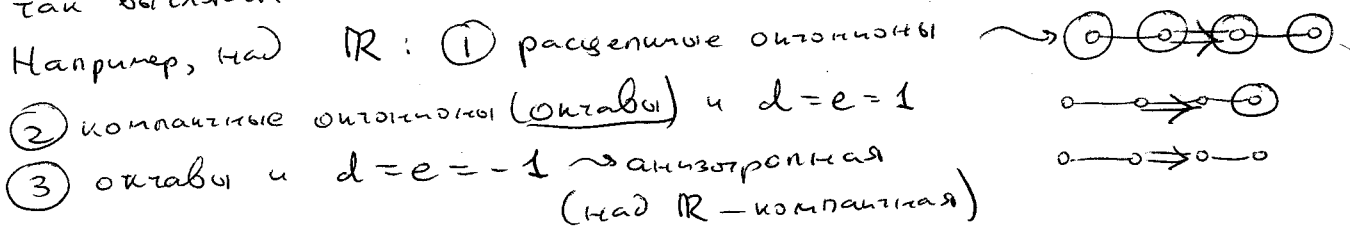 так
Например, над ℝ : ① расщепимые октонионы
② компактные октонионы (октавы) и d = e = 1
③ октавы и d = e = -1 ⇝ анизотропная
(над ℝ – компактная)